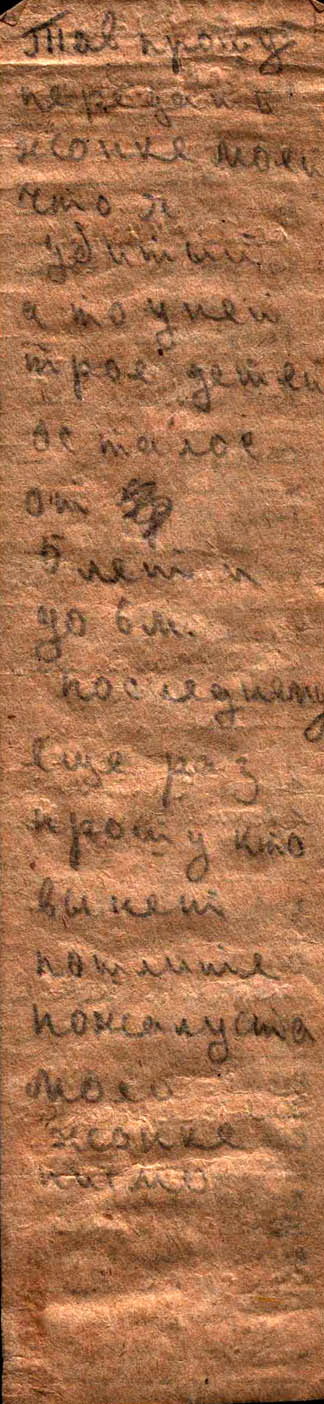 Тав прошу
передайте
жонке моей
что я
убитый
а то у ней
трое детей
осталос
от
5 лет и
до 6 м.
последнему
еще раз
прошу кто
вынет
пошлите
пожалуста
моей
жонке
писмо